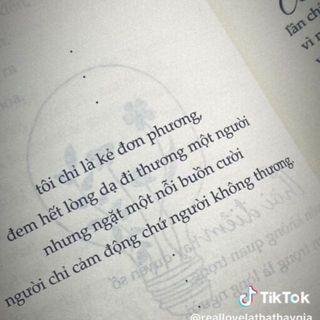 lần ch
vì n
tôi chỉ là kẻ đơn phương,
đem hết lòng dạ đi thương một người
nhưng ngặt một nỗi buồn cười
người chỉ cảm động chứ người không thương
TikTok
@reallovelathathaygia